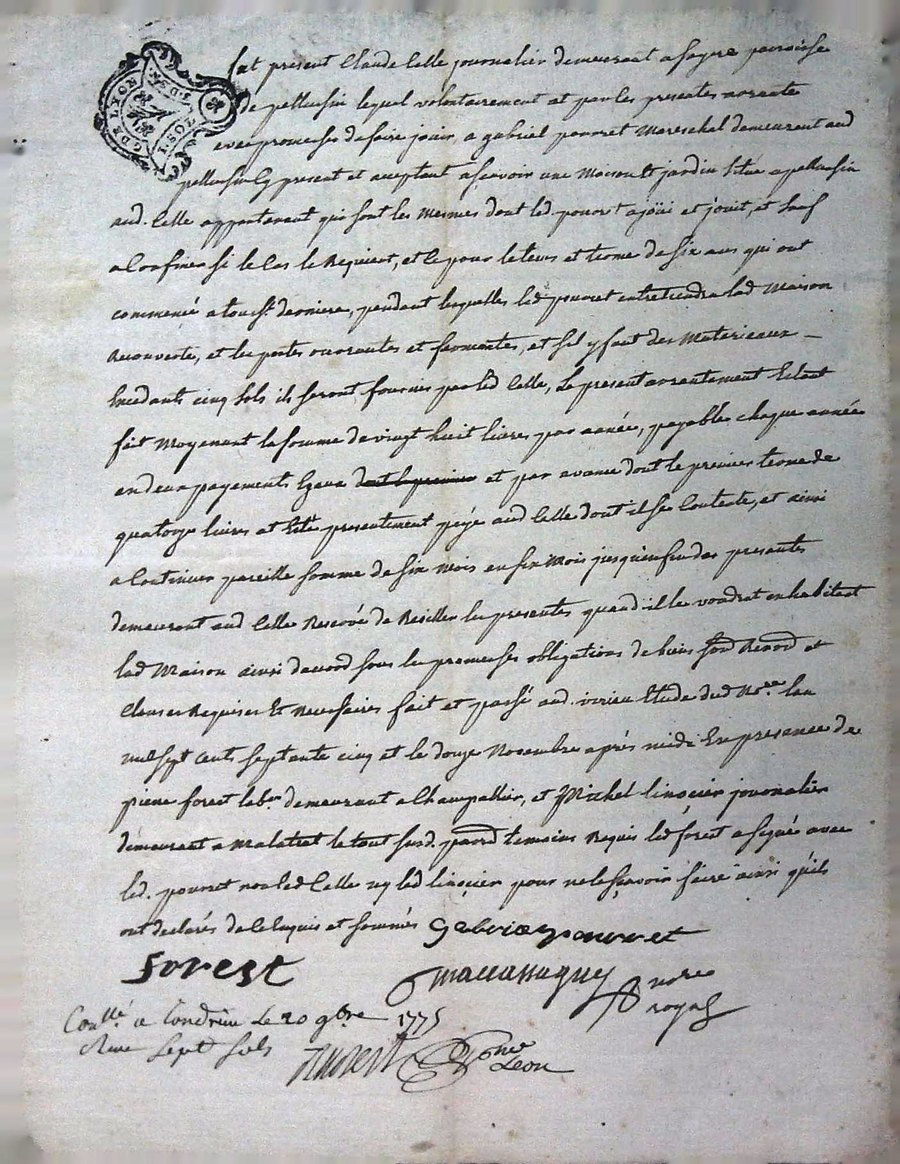 G. DE LYON
fut présent Claude Celle journalier demeurant a fayere parroisse
de pellussin lequel volontairement et par les présentes arrante
avec promesses de faire jouir, a gabriel pouret Mareschal demeurant aud
pellussin Cy present et aceptant ascavoir une Maison et jardin situé a pellussin
aud. Celle appartenant qui sont les mesmes dont led. pouret a joüi et jouit, et sauf
a Confiner si le Cas le Requiert, et Ce pour le tems et terme de six ans qui ont
commencé a touss.t derniere, pendant lesquelles led pouret entretiendra lad Maison
Recouverte, et les portes ouvrantes et fermantes, et s'il y faut des Materieaux
Excedants cinq sols ils seront fournis par led Celle, Le present arrantement Estant
fait Moyenant la somme de vingt huit livres par année, payables chaque année
en deux payements Egaux dont le premier et par avance dont le premier terme de
quatorze livres at Eté presentement payé aud Celle dont il se Contente, et ainsi
a Continuer pareille somme de six mois en six Mois jusques en fin des presentes
demeurant aud Celle Reservé de Resillier les presentes quand il le voudrat en habitant
lad Maison ainsi dacord sous les promesses obligations de biens et
Clauses Requises Et Necessaires fait et passé aud. virieu Etude dud No.re lan
mil sept cents septante cinq et le douze Novembre après midi En presence de
piere forest lab.r demeurant a Champallier, et Michel linossier journalier
démeurant a Malatrat le tout susd. temoins Requis led forest a signé avec
led. pouret non led Celle ny led linossier pour ne le sçavoir faire ainsi qu'ils
ont declarés de Ce Enquis et sommés gabriel pouret
forest
Nore
royal
Coollé a Condrieu le 20 9bre 1775
Reçu sept sols
Leon